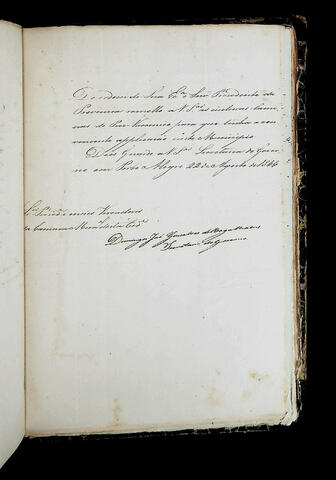 De ordem de Sua Exª o Snr Presidente da
Provincia remetto a V Sªs as inclusas lami-
nas de Puz Vaccinico para que tenha o con-
veniente applicação neste Municipio.
Deus Guarde a V Sªs Secretaria do Gover-
no em Porto Alegre 22 de Agosto de 1844
Snrs Presidᵉ e mais Vereadores
da Camara Municipal da Cidᵉ
Domingos José Gonçalves de Magalhaens
Secretario do Governo